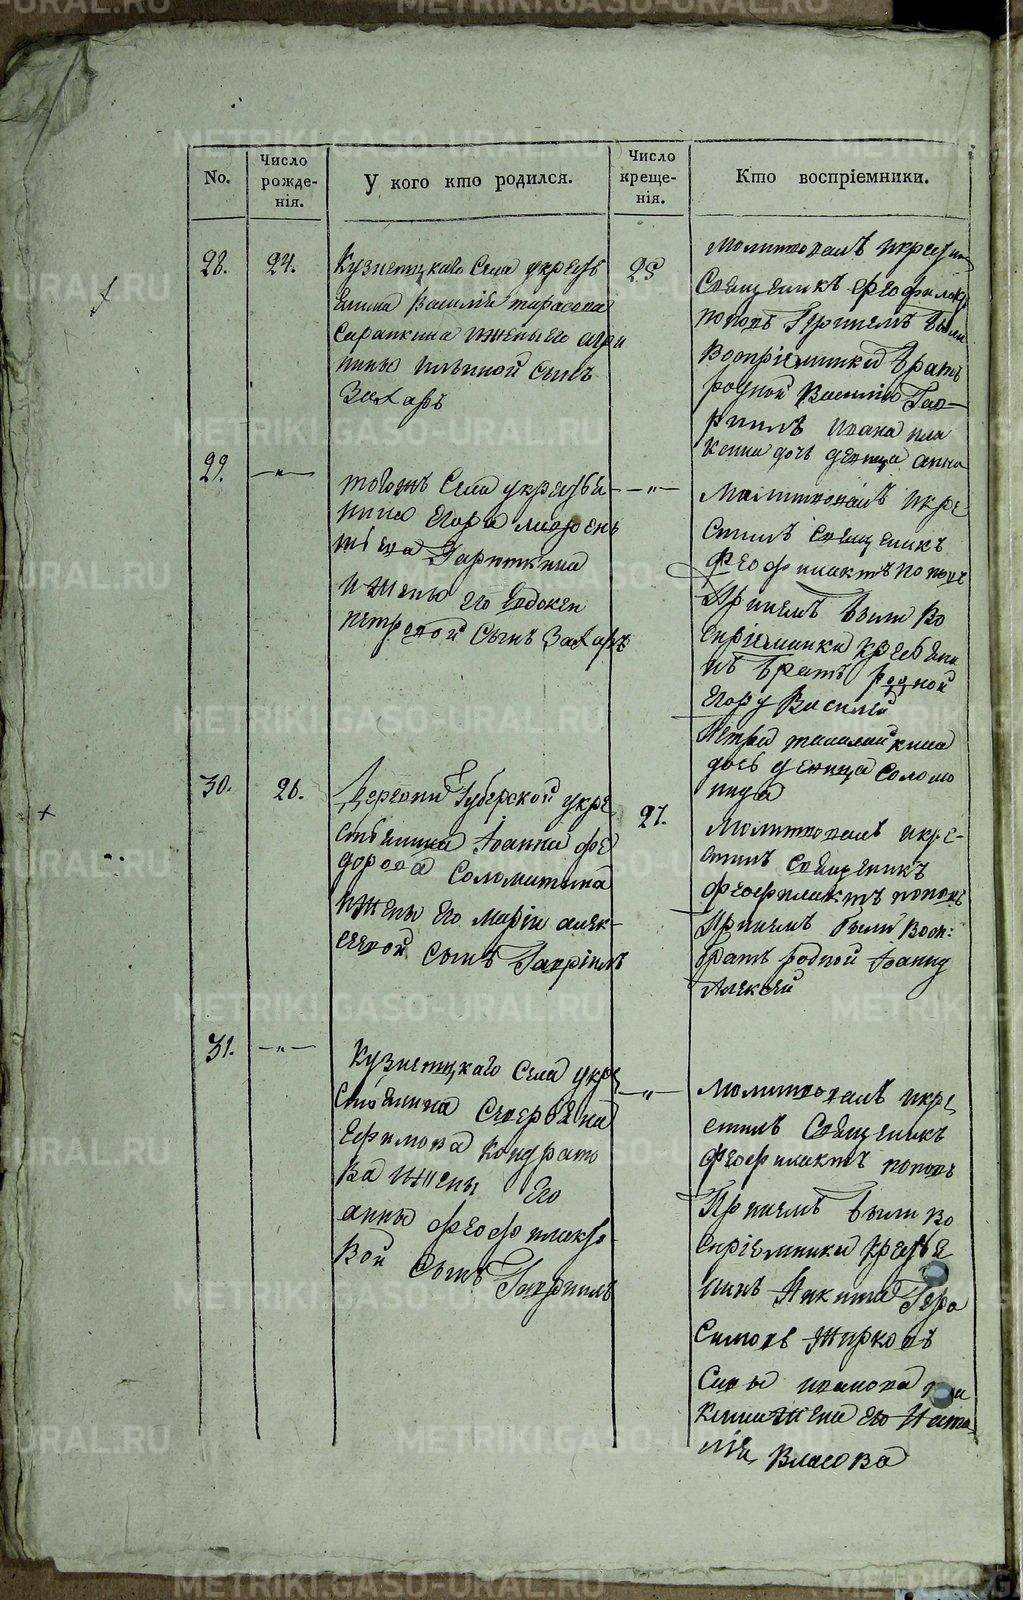 No.
Число рожде-нія.
У кого кто родился.
Число креще-нія.
Кто воспріемники.
28.
24.
Кузнетцкаго Села укрестья
енина Василія тарасова
Сарапкина ижены его агри
пины сынъ
Захаръ
25
молитвовалъ икрестил
Священикъ Феофилакт
поповъ Притемъ были
Воспріемники братъ
родной Василію Гав-
риилъ ивана пла
кеина дочь девица анна
29.
— " —
тогожъ Села укрестья
нина Егора
Гарипкина
ижены его Евдокеи
петровой сынъ Захаръ
— " —
Молитвовалъ икре
стилъ Священикъ
Феофилактъ поповъ
Притемъ были во
спріемники крестьяни
нъ братъ родной
Егору Василей
Петра талалайкина
дочь девица Соломо
нида
30.
26.
Деревни Губерской укре
стьянина Іоанна фе
дорова Соломатина
ижены Его Маріи алек-
сеевой сынъ Гавріилъ
27.
Молитвовалъ икре-
стилъ священикъ
феофилактъ поповъ
Притемъ были Восп:
братъ родной Іоанну
Алексей
31.
— " —
Кузнетцкаго Села укре
стьянина Северьяна
Ефимова Кондрато
ва ижены Его
анны феофилакто
вой сынъ Гавриилъ
— " —
Молитвовалъ икре
стилъ Священикъ
феофилактъ поповъ
Притемъ были во
спріемники крестья
нинъ Никита Гера
симовъ Жирковъ
Савы иванова
жена Его Ната
лія Власова
METRIKI.GASO-URAL.RU